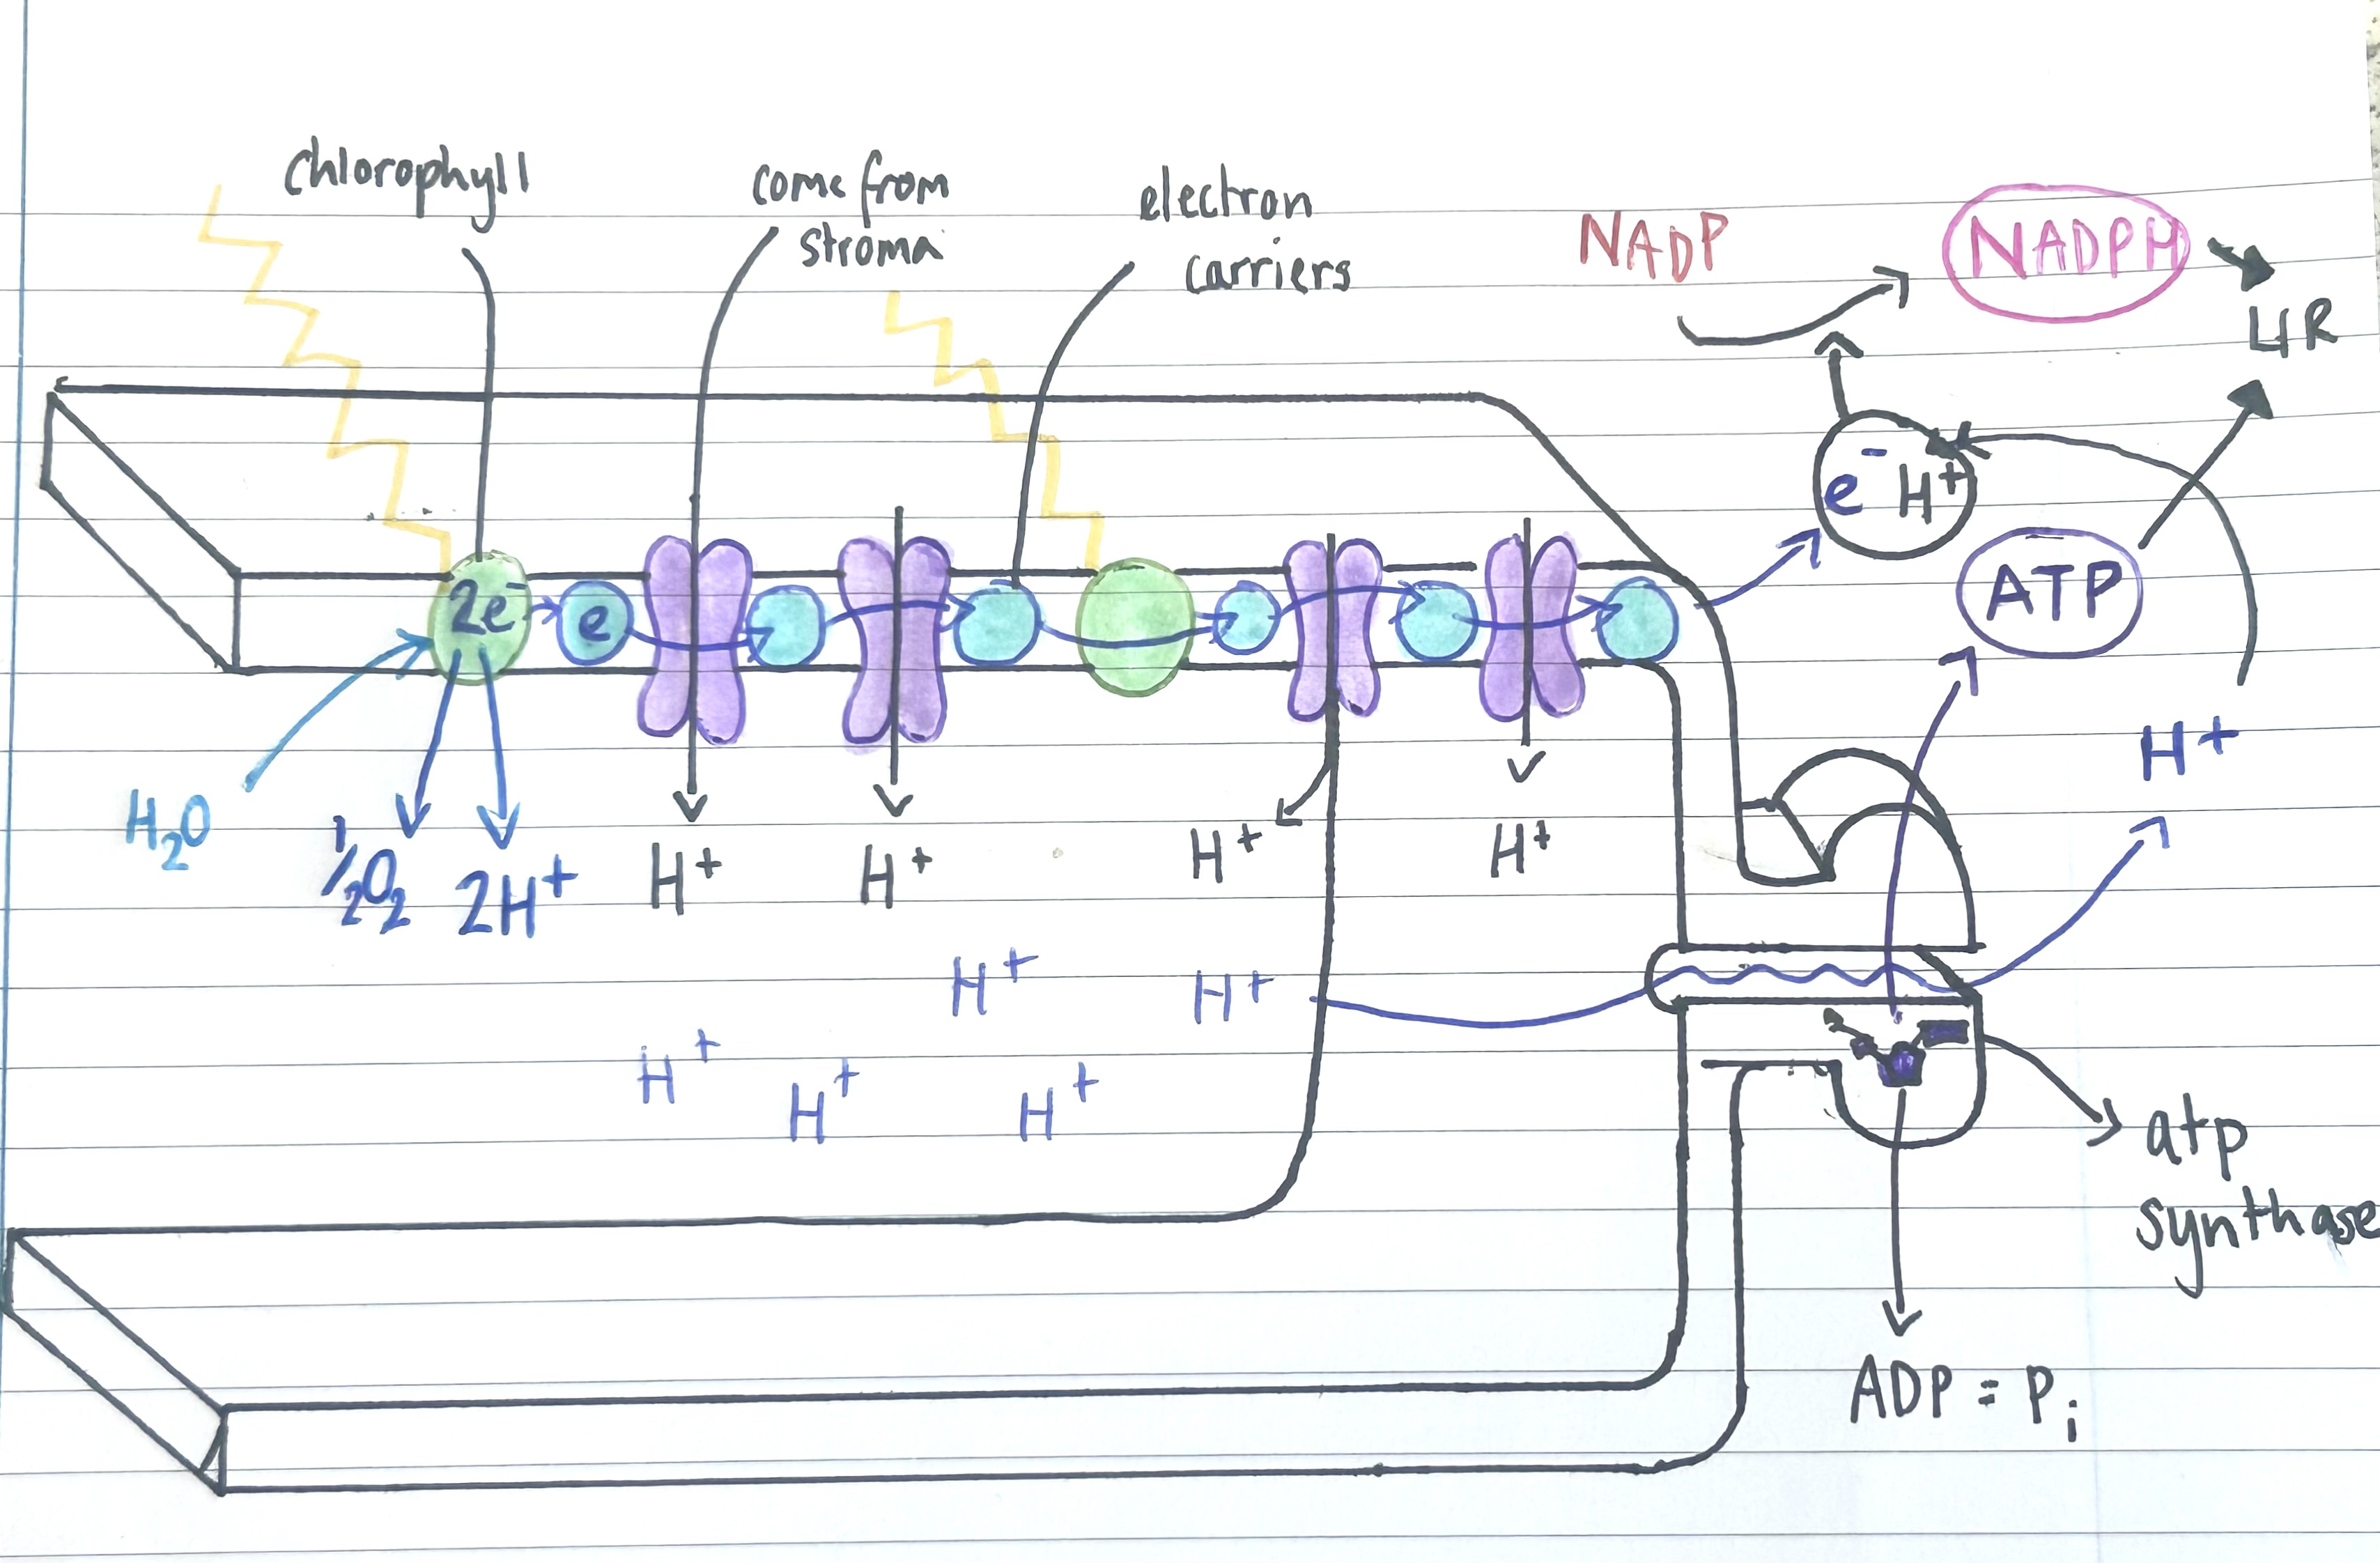 chlorophyll
come from
stroma
electron
carriers
NADP
NADPH
LIR
e⁻ H⁺
ATP
2e⁻
e
H₂O
½O₂
2H⁺
H⁺
H⁺
H⁺
H⁺
H⁺
H⁺
H⁺
H⁺
H⁺
H⁺
atp
synthase
ADP = Pi